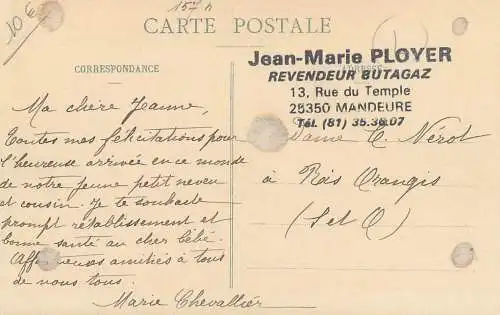 10 €
157 h
CARTE POSTALE
Jean-Marie PLOYER
REVENDEUR BUTAGAZ
13, Rue du Temple
25350 MANDEURE
Tél. (81) 35.36.07
CORRESPONDANCE
ADRESSE
Ma chère Jeanne,
Toutes mes félicitations pour
l'heureuse arrivée en ce monde
de notre jeune petit neveu
et cousin. Je te souhaite
prompt rétablissement et
bonne santé au cher bébé.
Affectueuses amitiés à tous
de nous tous.
Marie Chevallier
Dame C. Nérot
à Ris Orangis
(S et O)